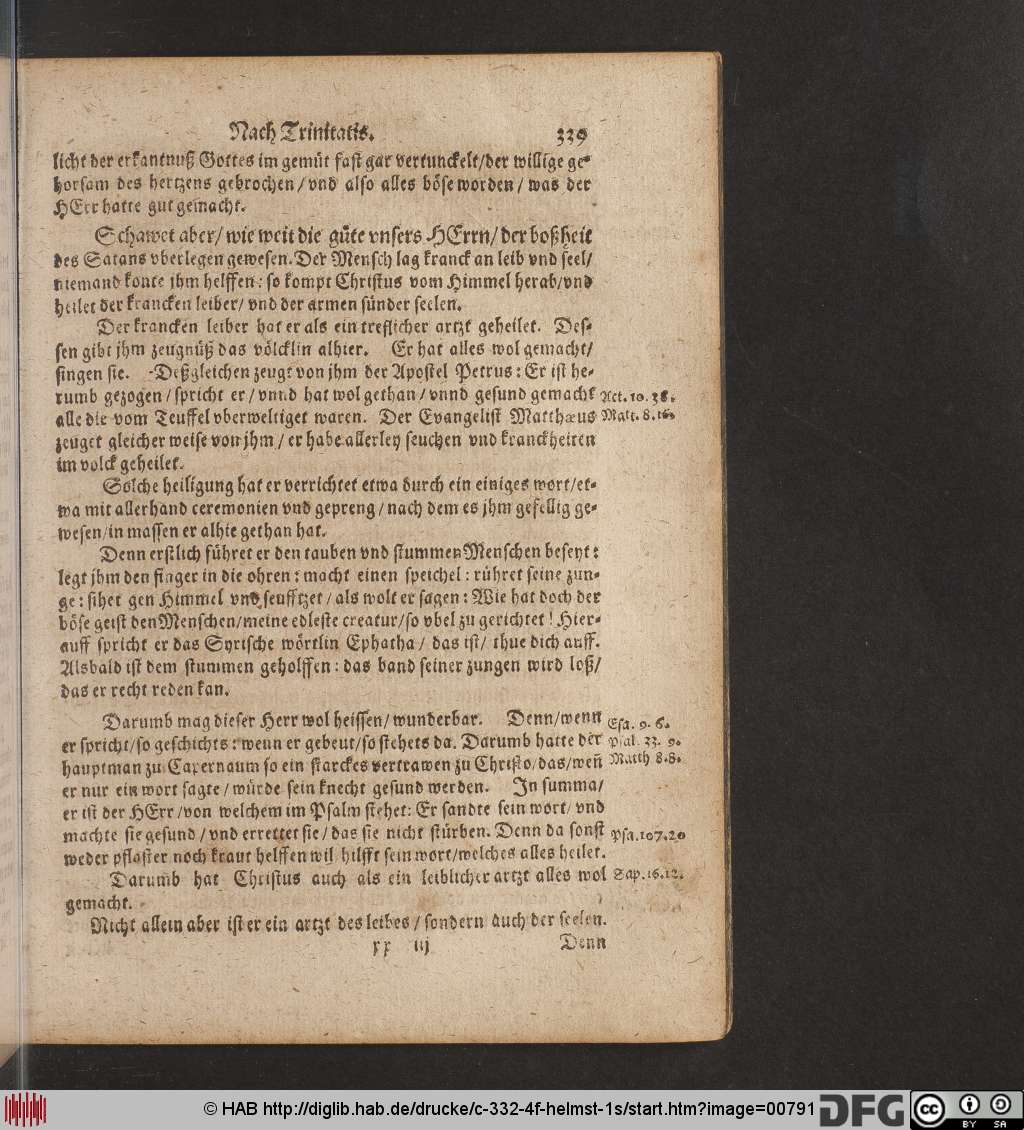 Nach Trinitatis. 339
licht der erkantnuß Gottes im gemüt fast gar vertunckelt/der willige ge-
horsam des hertzens gebrochen/vnd also alles böse worden/was der
HErr hatte gut gemacht.
Schawet aber/wie weit die güte vnsers HErrn/der boßheit
des Satans vberlegen gewesen. Der Mensch lag kranck an leib vnd seel/
niemand konte jhm helffen: so kompt Christus vom Himmel herab/vnd
heilet der krancken leiber/vnd der armen sünder seelen.
Der krancken leiber hat er als ein treflicher artzt geheilet. Des-
sen gibt jhm zeugnüß das völcklin alhier. Er hat alles wol gemacht/
singen sie. Deßgleichen zeugt von jhm der Apostel Petrus: Er ist he-
rumb gezogen/spricht er/vnnd hat wol gethan/vnnd gesund gemacht Act. 10. 38.
alle die vom Teuffel vberweltiget waren. Der Evangelist Matthæus Matt. 8. 16.
zeuget gleicher weise von jhm/er habe allerley seuchen vnd kranckheiten
im volck geheilet.
Solche heiligung hat er verrichtet etwa durch ein einiges wort/et-
wa mit allerhand ceremonien vnd gepreng/nach dem es jhm gefellig ge-
wesen/in massen er alhie gethan hat.
Denn erstlich führet er den tauben vnd stummen Menschen beseyt:
legt jhm den finger in die ohren: macht einen speichel: rühret seine zun-
ge: sihet gen Himmel vnd seufftzet/als wolt er sagen: Wie hat doch der
böse geist den Menschen/meine edleste creatur/so vbel zu gerichtet! Hier-
auff spricht er das Syrische wörtlin Ephatha/das ist/thue dich auff.
Alsbald ist dem stummen geholffen: das band seiner zungen wird loß/
das er recht reden kan.
Darumb mag dieser Herr wol heissen/wunderbar. Denn/wenn Esa. 9. 6.
er spricht/so geschichts: wenn er gebeut/so stehets da. Darumb hatte der Psal. 33. 9.
hauptman zu Capernaum so ein starckes vertrawen zu Christo/das/weñ Matth 8.8.
er nur ein wort sagte/würde sein knecht gesund werden. In summa/
er ist der HErr/von welchem im Psalm stehet: Er sandte sein wort/vnd
machte sie gesund/vnd errettet sie/das sie nicht stürben. Denn da sonst Psa. 107. 20
weder pflaster noch kraut helffen wil/hilfft sein wort/welches alles heilet.
Darumb hat Christus auch als ein leiblicher artzt alles wol Sap. 16. 12.
gemacht.
Nicht allein aber ist er ein artzt des leibes/sondern auch der seelen.
xx iij Denn
© HAB http://diglib.hab.de/drucke/c-332-4f-helmst-1s/start.htm?image=00791 DFG cc BY SA